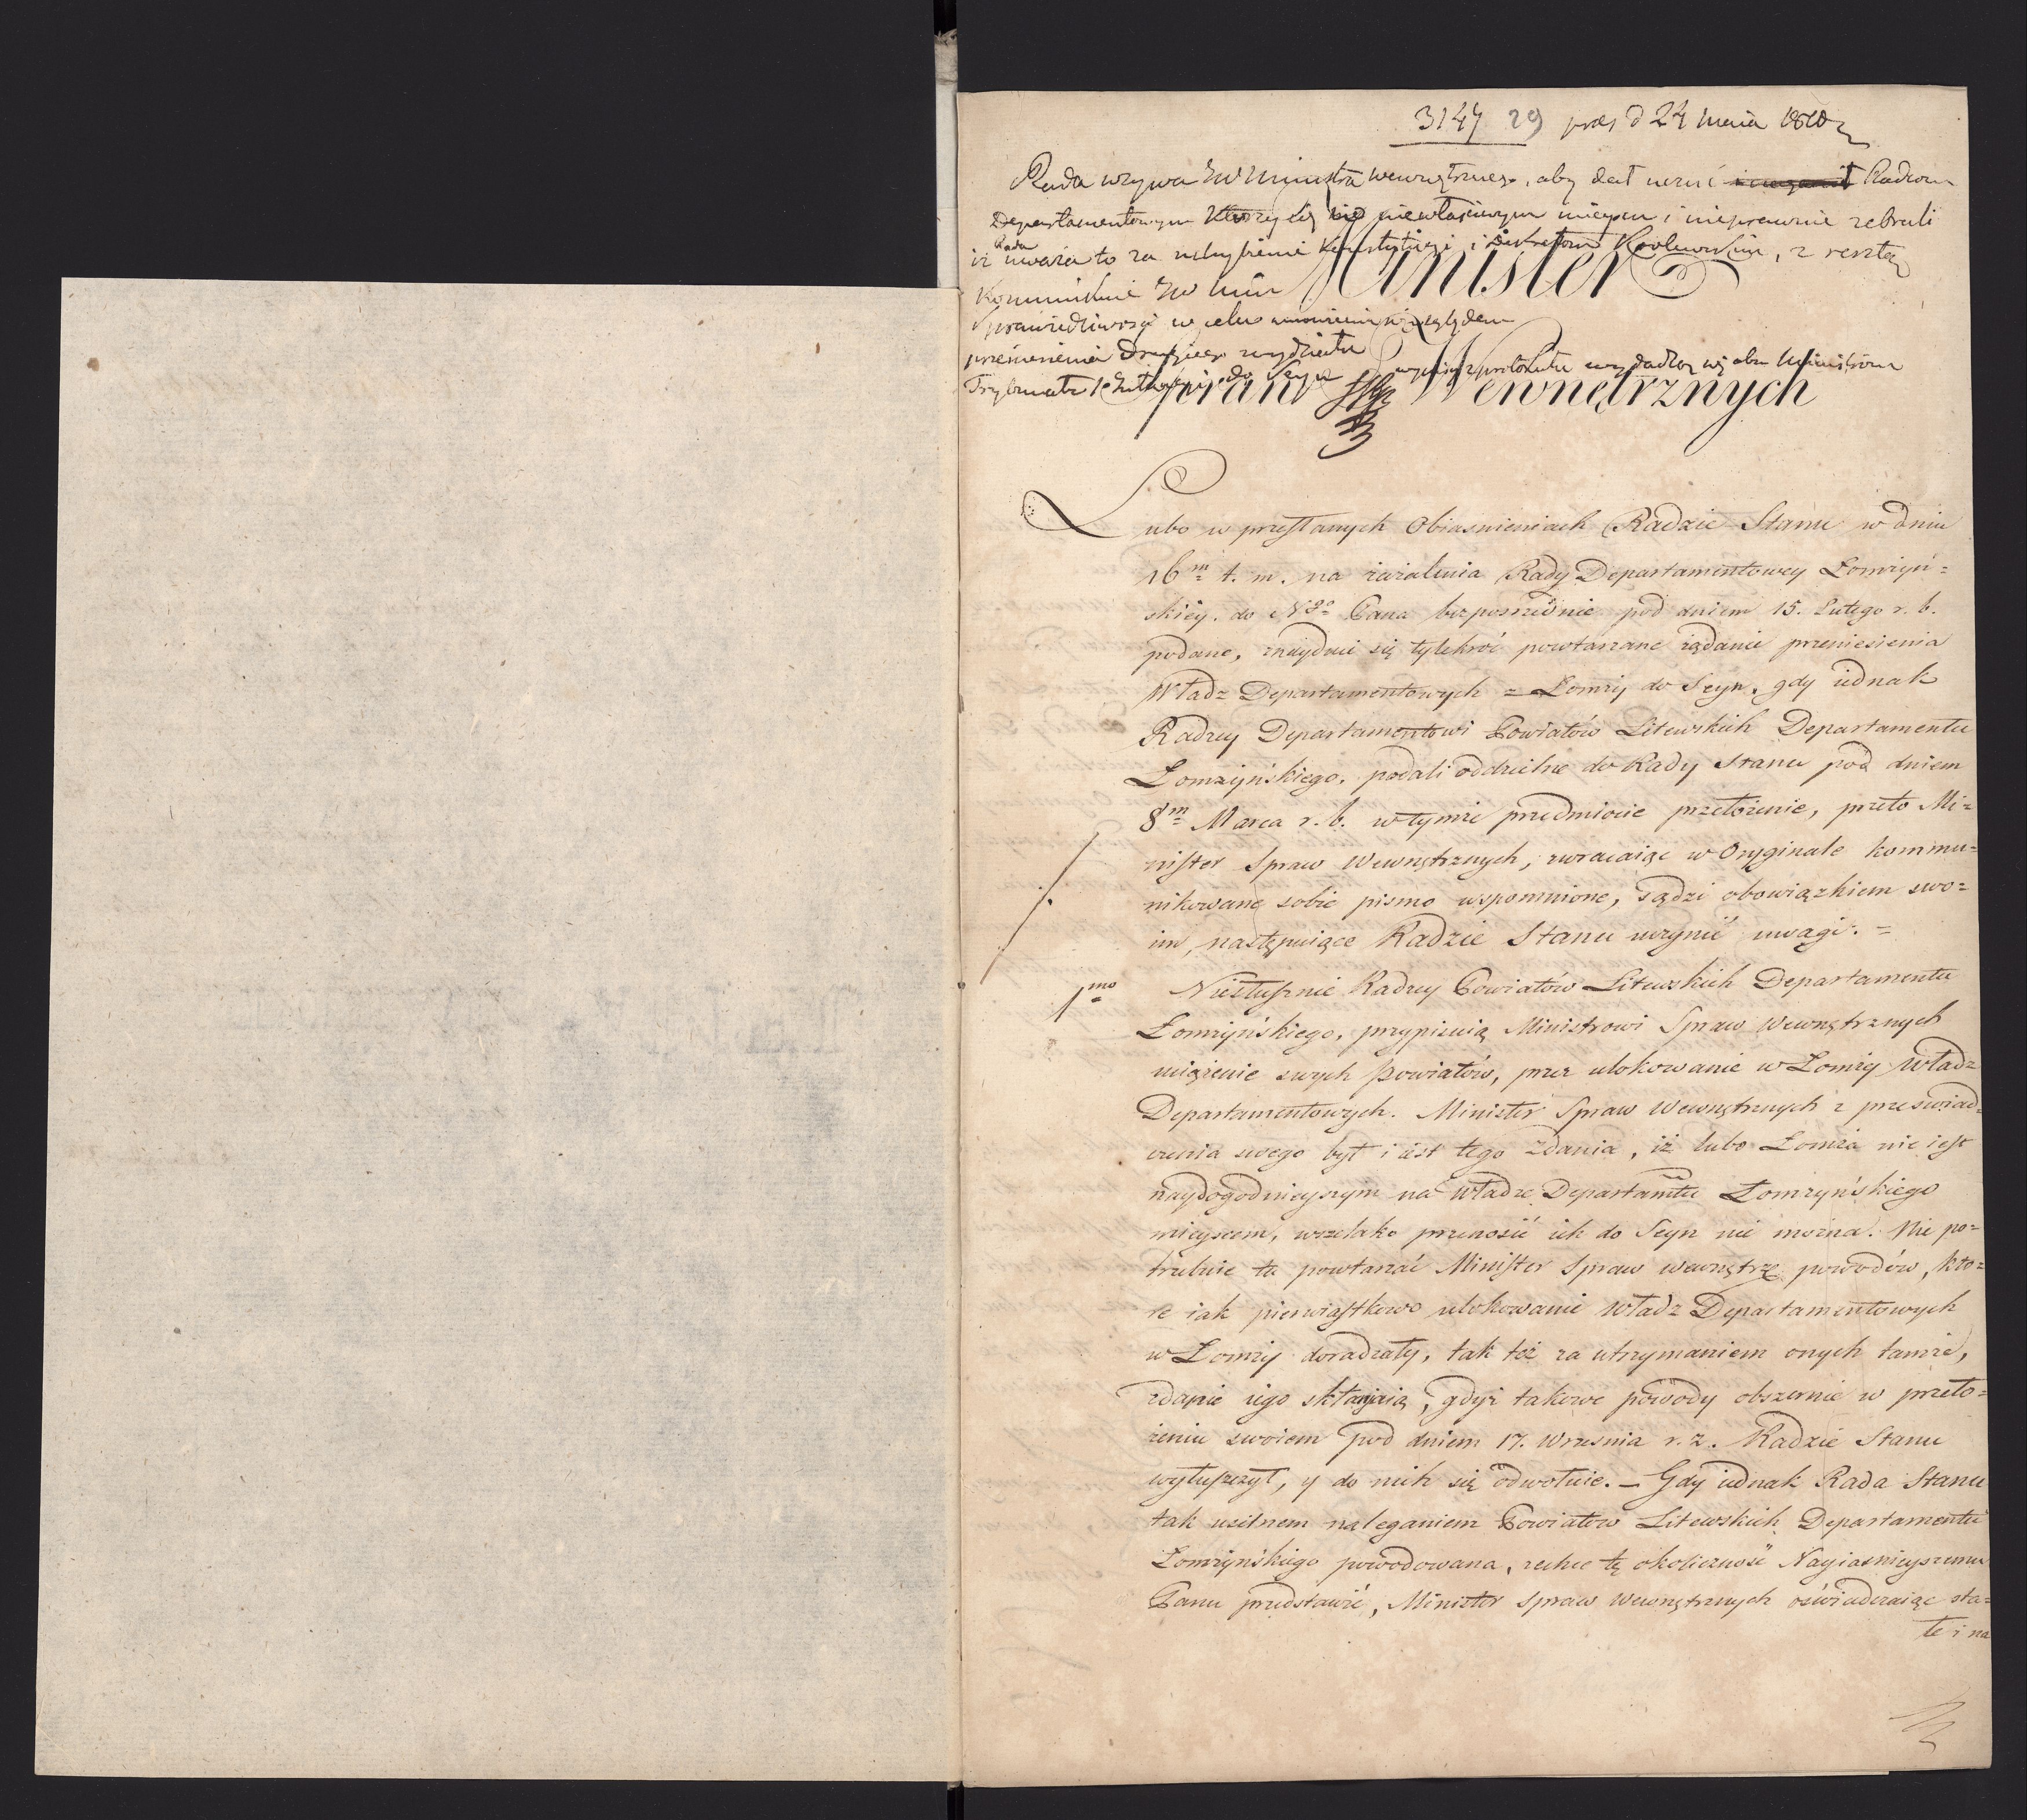 3147 29 prez d 24 maia 1810
Rada wzywa JW Ministra Wewnętrznego, aby dał uczuć Radcom
Departamentowym którzy się w niewłaściwym mieyscu i nieprawnie zebrali
iż Rada uważa to za uchybienie Konstytucyi i Dekretom Królewskim, z resztą
kommunikuie JW Min
Sprawiedliwości w celu względem
przeniesienia drugiego wydziału
Trybunału do Seyn wypisy z protokułu wydadzą się obu Ministrom
Minister
Spraw Wewnętrznych
Lubo w przesłanych Obiasnieniach Radzie Stanu w dniu
16m t. m. na zażalenia Rady Departamentowey Łomżyń=
skiéy. do Ngo Pana bezpośrednie pod dniem 15. Lutego r. b.
podane, znayduie się tylekroć powtarzane żądanie przeniesienia
Władz Departamentowych z Łomży do Seyn, gdy iednak
Radzcy Departamentowi Powiatów Litewskich Departamentu
Łomżyńskiego, podali oddzielne do Rady Stanu pod dniem
8m Marca r. b. w tymże przedmiocie przełożenie, przeto Mi=
nister Spraw Wewnętrznych, zwracaiąc w Oryginale kommu=
nikowane sobie pismo wspomnione, sądzi obowiązkiem swo=
im, następuiące Radzie Stanu uczynić uwagi. =
1mo Niesłusznie Radzcy Powiatów Litewskich Departamentu
Łomżyńskiego, przypisuią Ministrowi Spraw Wewnętrznych
uciążenie swych Powiatów, przez ulokowanie w Łomży Władz
Departamentowych. Minister Spraw Wewnętrznych z przeswiad=
czenia swego był i iest tego zdania, iż lubo Łomża nie iest
naydogodnieyszym na Władze Departamtu Łomżyńskiego
mieyscem, wszelako przenosić ich do Seyn nie można. Nie po=
trzebuie tu powtarzać Minister Spraw wewnętrz: powodów, któ=
re iak pierwiastkowo ulokowanie Władz Departamentowych
w Łomży doradzały, tak też za utrzymaniem onych tamże,
zdanie iego skłaniaią, gdyż takowe powody obszernie w przeło=
żeniu swoiem pod dniem 17. Wrzesnia r. z. Radzie Stanu
wyłuszczył, y do nich się odwołuie. – Gdy iednak Rada Stanu
tak usilnem naleganiem Powiatów Litewskich Departamentu
Łomżyńskiego powodowana, zechce tę okoliczność Nayiasnieyszemu
Panu przedstawić, Minister Spraw Wewnętrznych oświadczaiąc sta=
łe i na